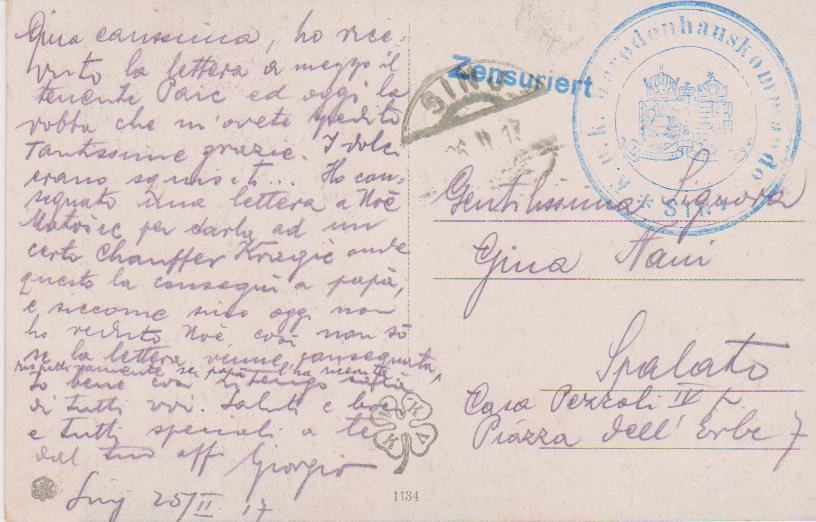 Gina carissima, ho rice-
vuto la lettera a mezzo il
tenente Paic ed oggi la
robba che m'avete spedito
Tantissime grazie. I dolci
erano squisiti... Ho con-
segnato una lettera a Noè
Matošić per darla ad un
certo Chauffer Kragić onde
questo la consegni a papà,
e siccome sino oggi non
ho veduto Noè, così non sò
se la lettera venne consegnata,
se papà l'ha ricevuta
Io bene così
di tutti voi. Saluti e baci
e tutti speciali a te
dal tuo aff. Giorgio
Sinj 25/II 17
Zensuriert
SINJ
II 17
K.u.K.
* SINJ *
Gentilissima Signora
Gina Nani
Spalato
Casa Pezzoli IV
Piazza dell' Erbe 7
1134